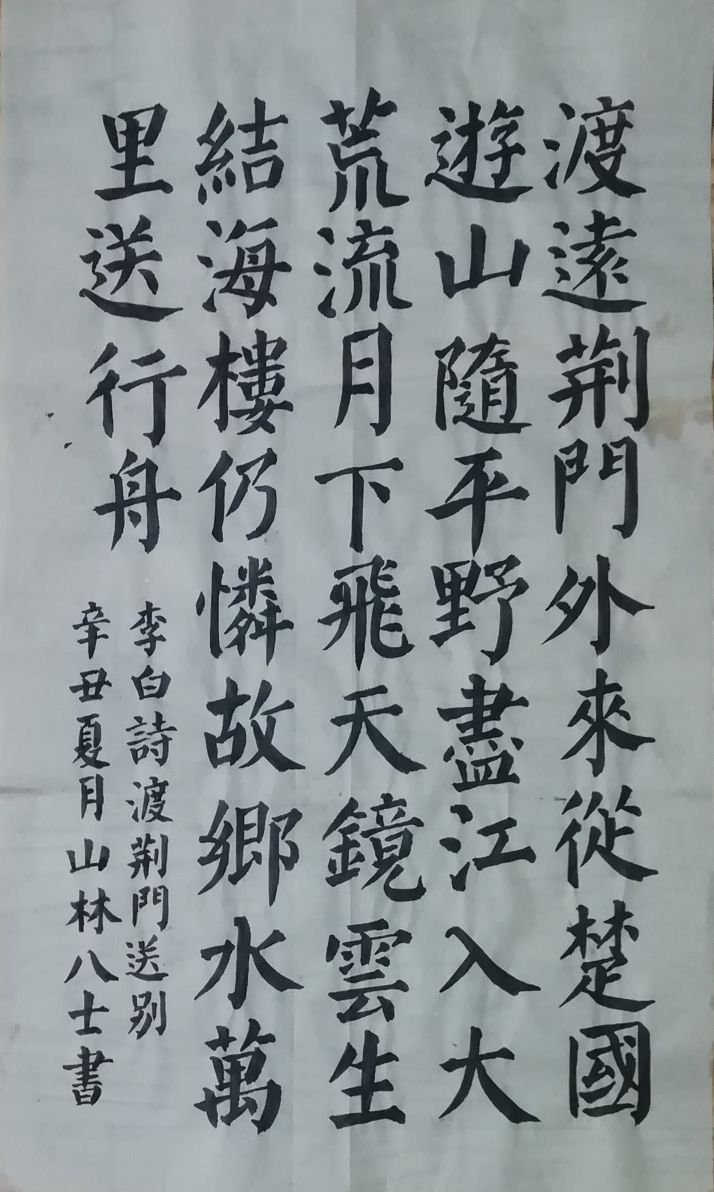 渡遠荆門外來從楚國
遊山隨平野盡江入大
荒流月下飛天鏡雲生
結海樓仍憐故鄉水萬
里送行舟
李白詩渡荆門送别
辛丑夏月山林八士書